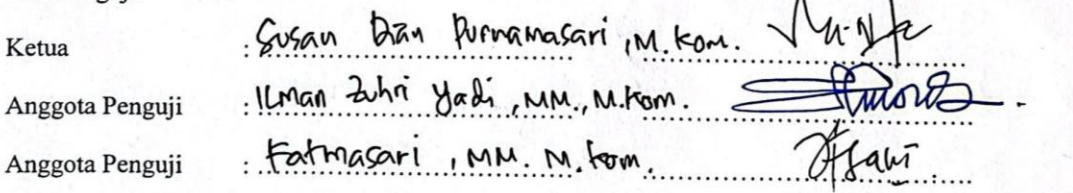 Ketua : Susan Dian Purnamasari, M.Kom.
Anggota Penguji : Ilman Zuhri Yadi, MM., M.Kom.
Anggota Penguji : Fatmasari, MM. M.Kom.